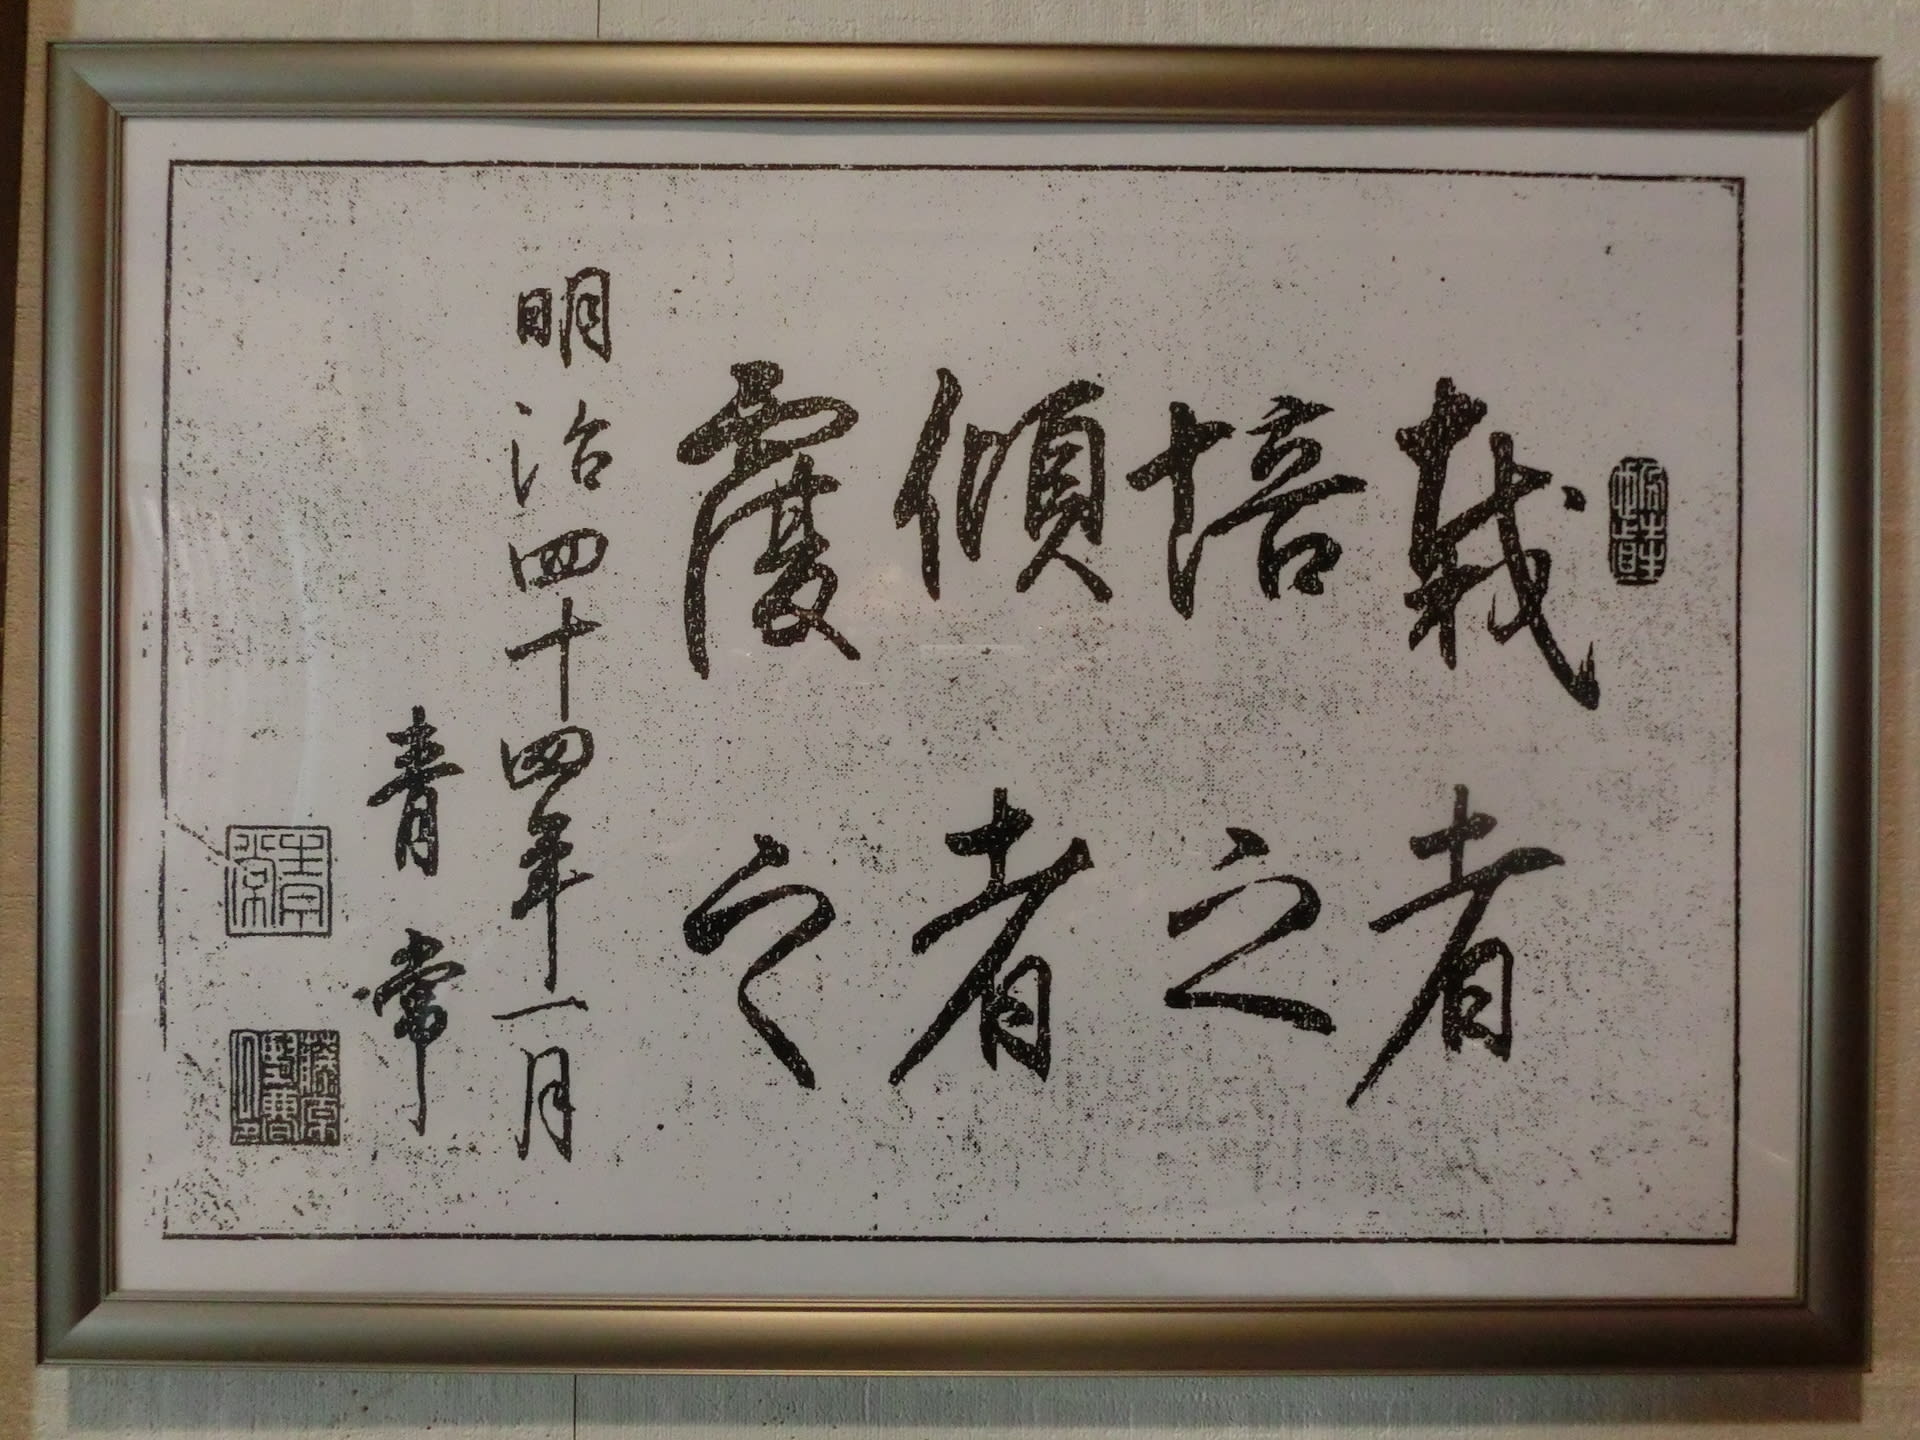 栽者
培之
傾者
覆之
明治四十四年一月
青常